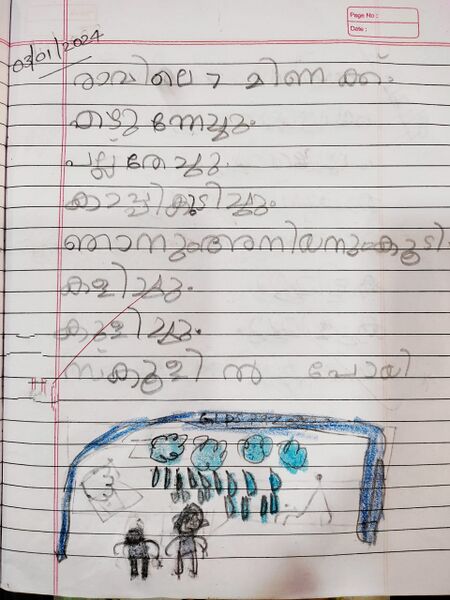 Page No :
Date :
03/01/2024
രാവിലെ 7 മിണക്ക്
എഴുന്നേച്ചും.
പല്ല് തേച്ചും.
കാപ്പികുടിച്ചും.
ഞാനുംഅനിയനുംകൂടി
കളിച്ചും.
കുളിച്ചും.
സ്കൂളിൽ പോയി